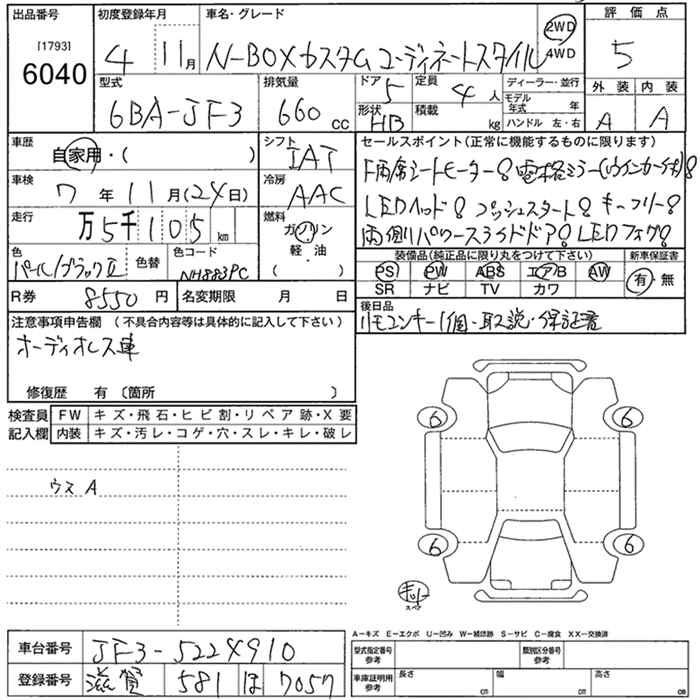 出品番号 初度登録年月 車名・グレード 評価点
[1793] 6040 4 11月 N-BOXカスタム コーディネートスタイル 2WD 4WD 5
型式 排気量 ドア 定員 ディーラー・並行 外装 内装
6BA-JF3 660cc 5 4人 モデル年式 年 A A
形状 HB 積載 kg ハンドル 左・右
車歴 自家用・( ) シフト IAT セールスポイント(正常に機能するものに限ります)
F両席シートヒーター 電格ミラー(ウインカー付)
車検 7年11月(24日) 冷房 AAC LEDヘッド プッシュスタート キーフリー
走行 万5千105km 燃料 ガソリン 両側パワースライドドア LEDフォグ
軽・油
( )
色 パール/ブラックⅡ 色替 色コード NH883PC
装備品(純正品に限り丸をつけて下さい) 新車保証書
PS PW ABS エアB AW 有・無
SR ナビ TV カワ
R券 8550円 名変期限 月 日
後日品
リモコンキー1個・取説・保証書
注意事項申告欄(不具合内容等は具体的に記入して下さい)
オーディオレス車
修復歴 有〔箇所 〕
検査員 FW キズ・飛石・ヒビ割・リペア跡・X要
記入欄 内装 キズ・汚レ・コゲ・穴・スレ・キレ・破レ
ウス A
6 6
6 6
スペア
A-キズ E-エクボ U-凹み W-補修跡 S-サビ C-腐食 XX-交換済
車台番号 JF3-5224910 型式指定番号 参考 類別区分番号 参考
登録番号 滋賀 581 ほ 7057 車庫証明用 参考 長さ cm 幅 cm 高さ cm